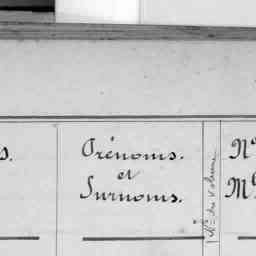 s.
Prénoms.
et
Surnoms.
N° du volume
N°
M